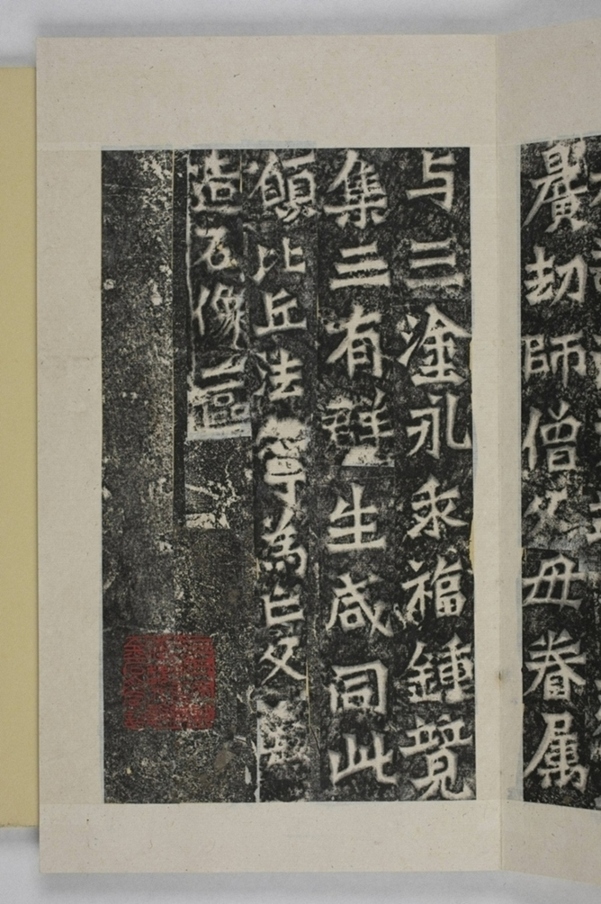 曠劫師僧父母眷属
与三塗永乖福鍾竟
集三有群生咸同此
願比丘法寧為亡父
造石像一區